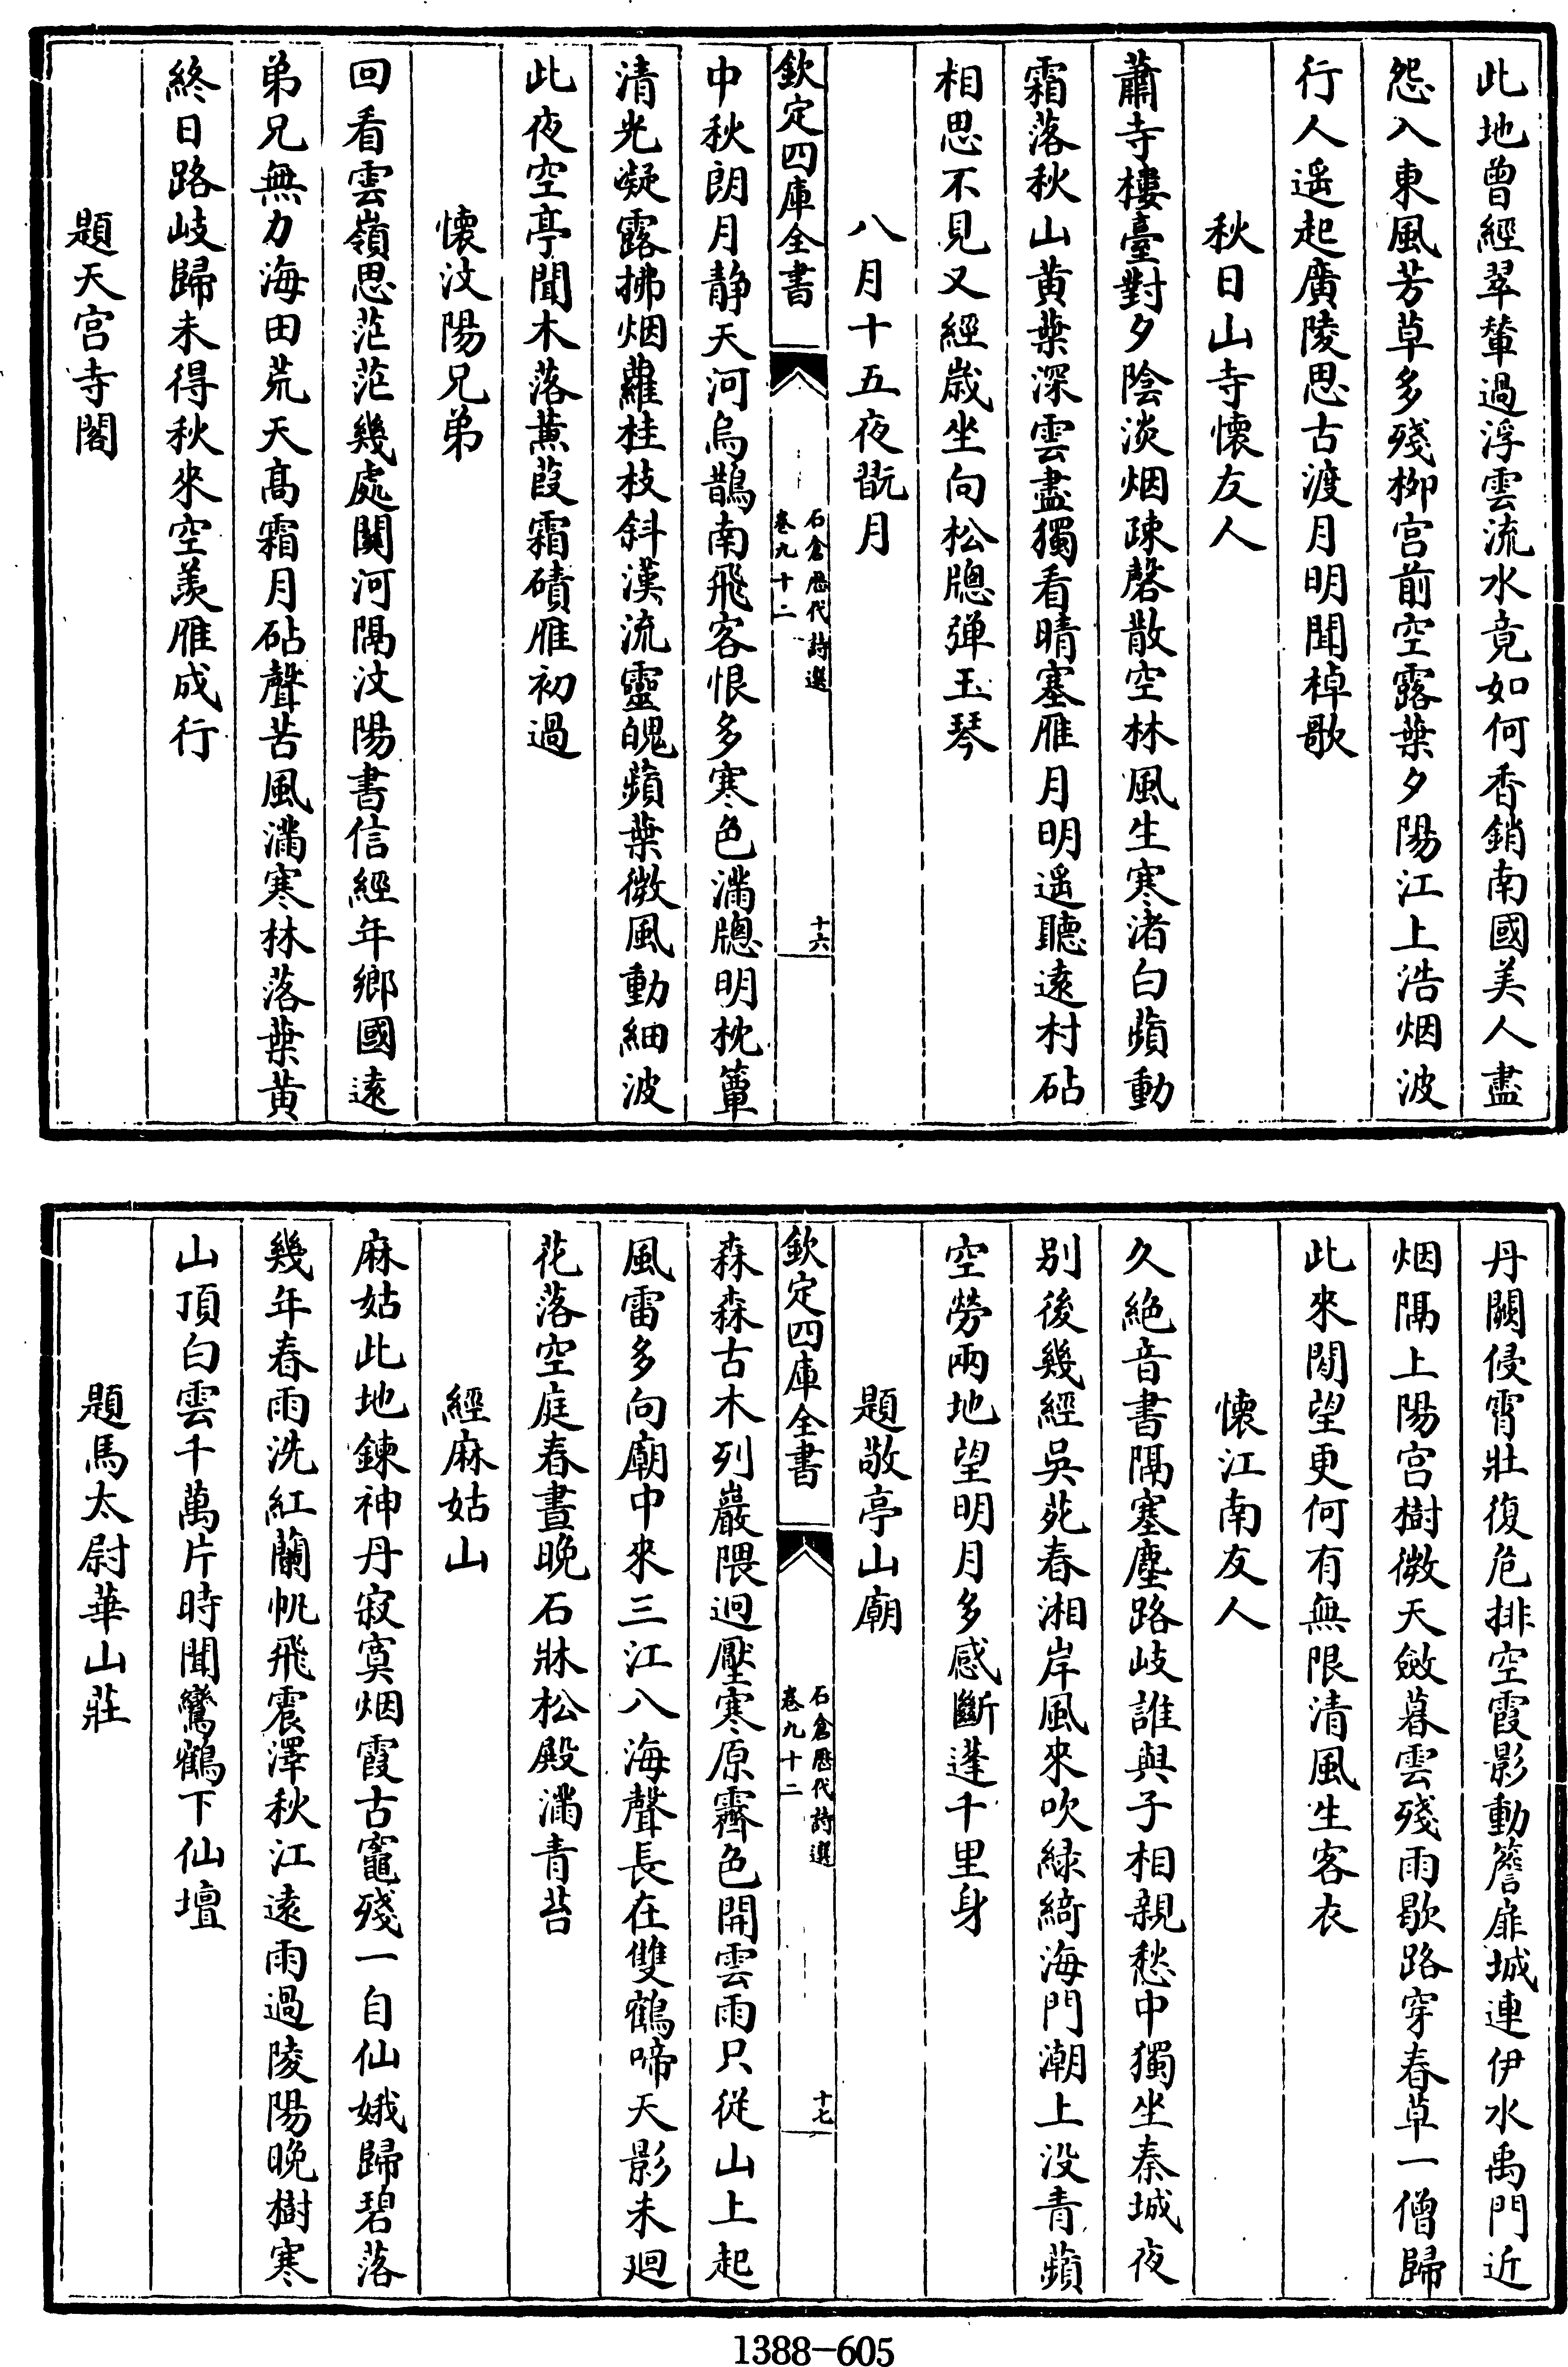 此地曾經翠輦過浮雲流水竟如何香銷南國美人盡
怨入東風芳草多殘柳宫前空露葉夕陽江上浩烟波
行人遥起廣陵思古渡月明聞棹歌
秋日山寺懷友人
蕭寺樓臺對夕陰淡烟疎磬散空林風生寒渚白蘋動
霜落秋山黄葉深雲盡獨看晴塞雁月明遥聽遠村砧
相思不見又經歲坐向松牕弹玉琴
八月十五夜翫月
欽定四庫全書
石倉歴代詩選
卷九十二
十六
中秋朗月静天河烏鵲南飛客恨多寒色滿牕明枕簟
清光凝露拂烟蘿桂枝斜漢流靈魄蘋葉微風動細波
此夜空亭聞木落蒹葭霜磧雁初過
懷汶陽兄弟
回看雲嶺思茫茫幾處關河隔汶陽書信經年鄉國遠
弟兄無力海田荒天高霜月砧聲苦風滿寒林落葉黄
終日路岐歸未得秋來空羡雁成行
題天宫寺閣
丹闕侵霄壯復危排空霞影動簷扉城連伊水禹門近
烟隔上陽宫樹微天斂暮雲殘雨歇路穿春草一僧歸
此來閒望更何有無限清風生客衣
懷江南友人
久絶音書隔塞塵路岐誰與子相親愁中獨坐秦城夜
别後幾經吳苑春湘岸風來吹緑綺海門潮上没青蘋
空勞兩地望明月多感斷蓬千里身
題敬亭山廟
欽定四庫全書
石倉歴代詩選
卷九十二
十七
森森古木列巖隈迥壓寒原霽色開雲雨只從山上起
風雷多向廟中來三江八海聲長在雙鶴啼天影未廻
花落空庭春晝晚石牀松殿滿青苔
經麻姑山
麻姑此地鍊神丹寂寞烟霞古竈殘一自仙娥歸碧落
幾年春雨洗紅蘭帆飛震澤秋江遠雨過陵陽晚樹寒
山頂白雲千萬片時聞鸞鶴下仙壇
題馬太尉華山莊
1388-605